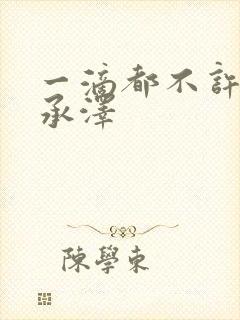 一滴都不許
承澤
陳學東